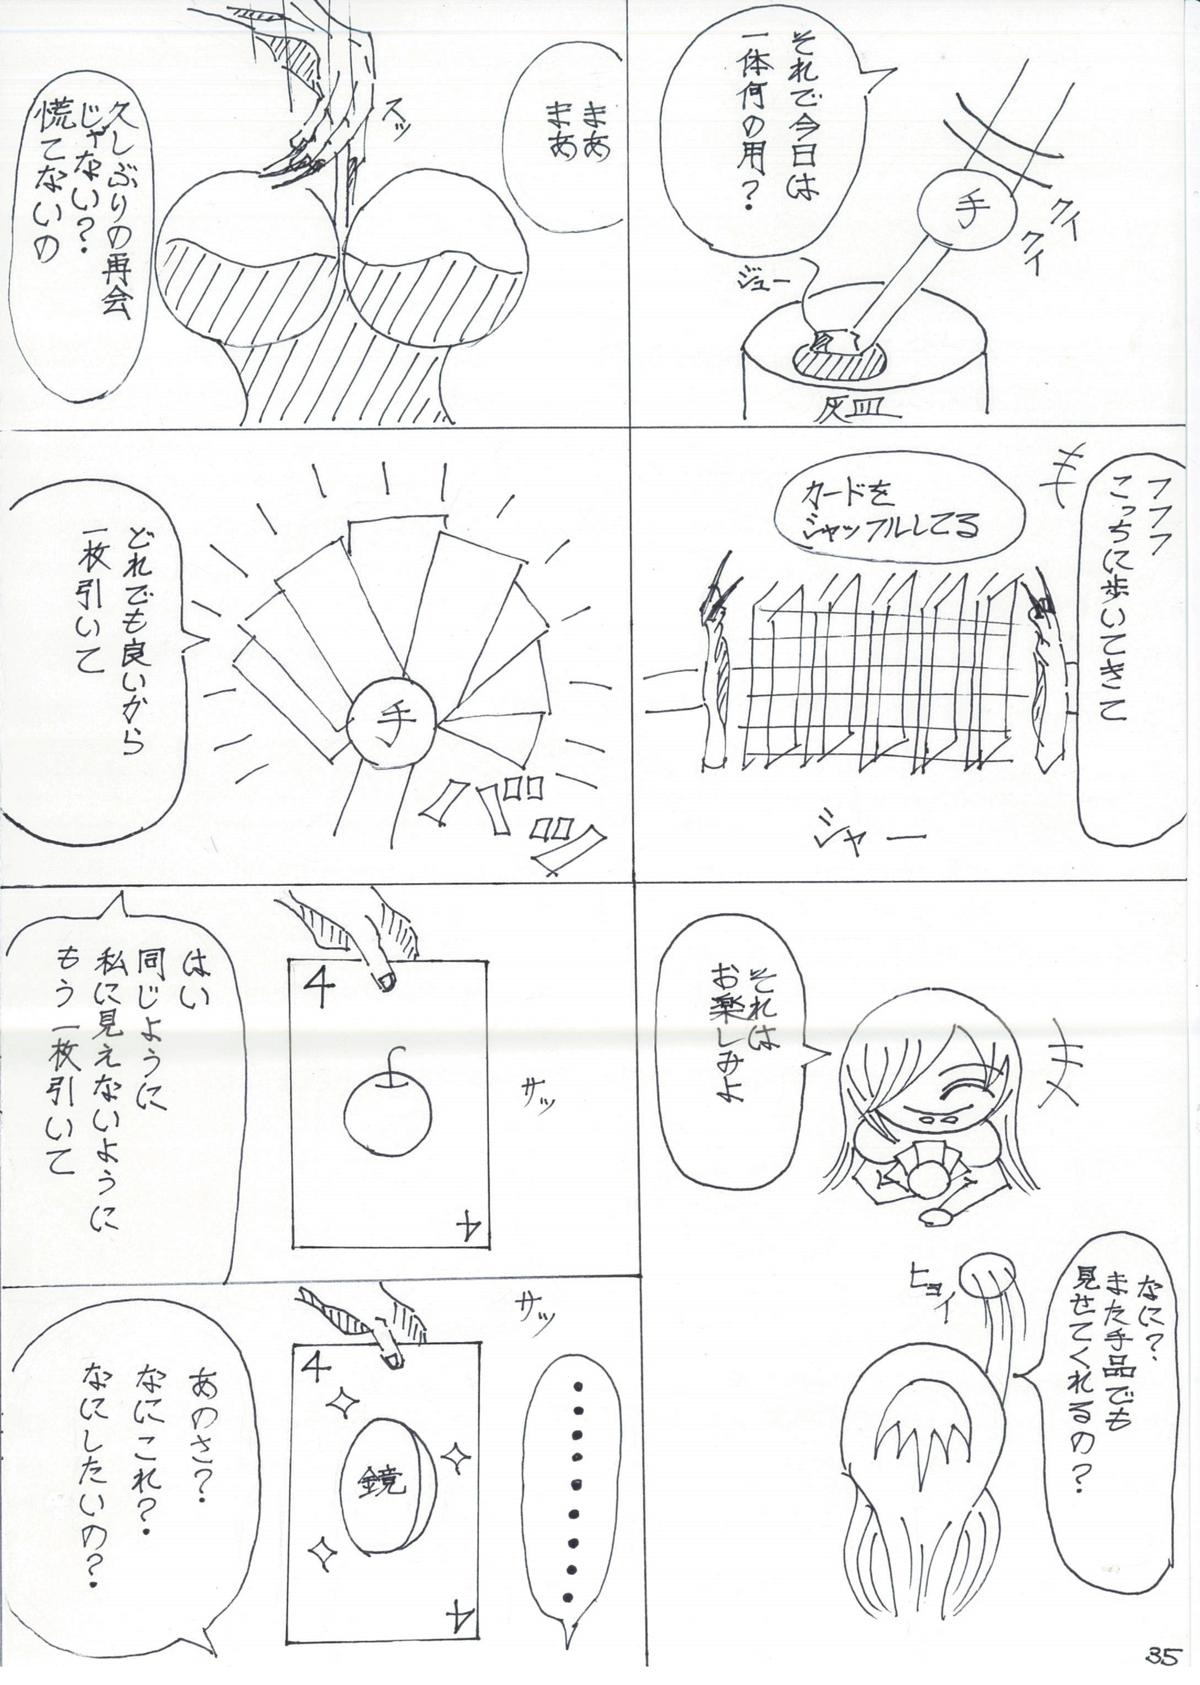 それで今日は
一体何の用?
手
クイ
クイ
ジュー
灰皿
まあ
まあ
スッ
久しぶりの再会
じゃない?
慌てないの
フフフ
こっちに歩いてきて
カードを
シャッフルしてる
シャー
どれでも良いから
一枚引いて
手
バババッ
それは
お楽しみよ
なに?
また手品でも
見せてくれるの?
ヒョイ
はい
同じように
私に見えないように
もう一枚引いて
4
サッ
4
サッ
4
鏡
4
・・・・・・・・
あのさ?
なにこれ?
なにしたいの?
35